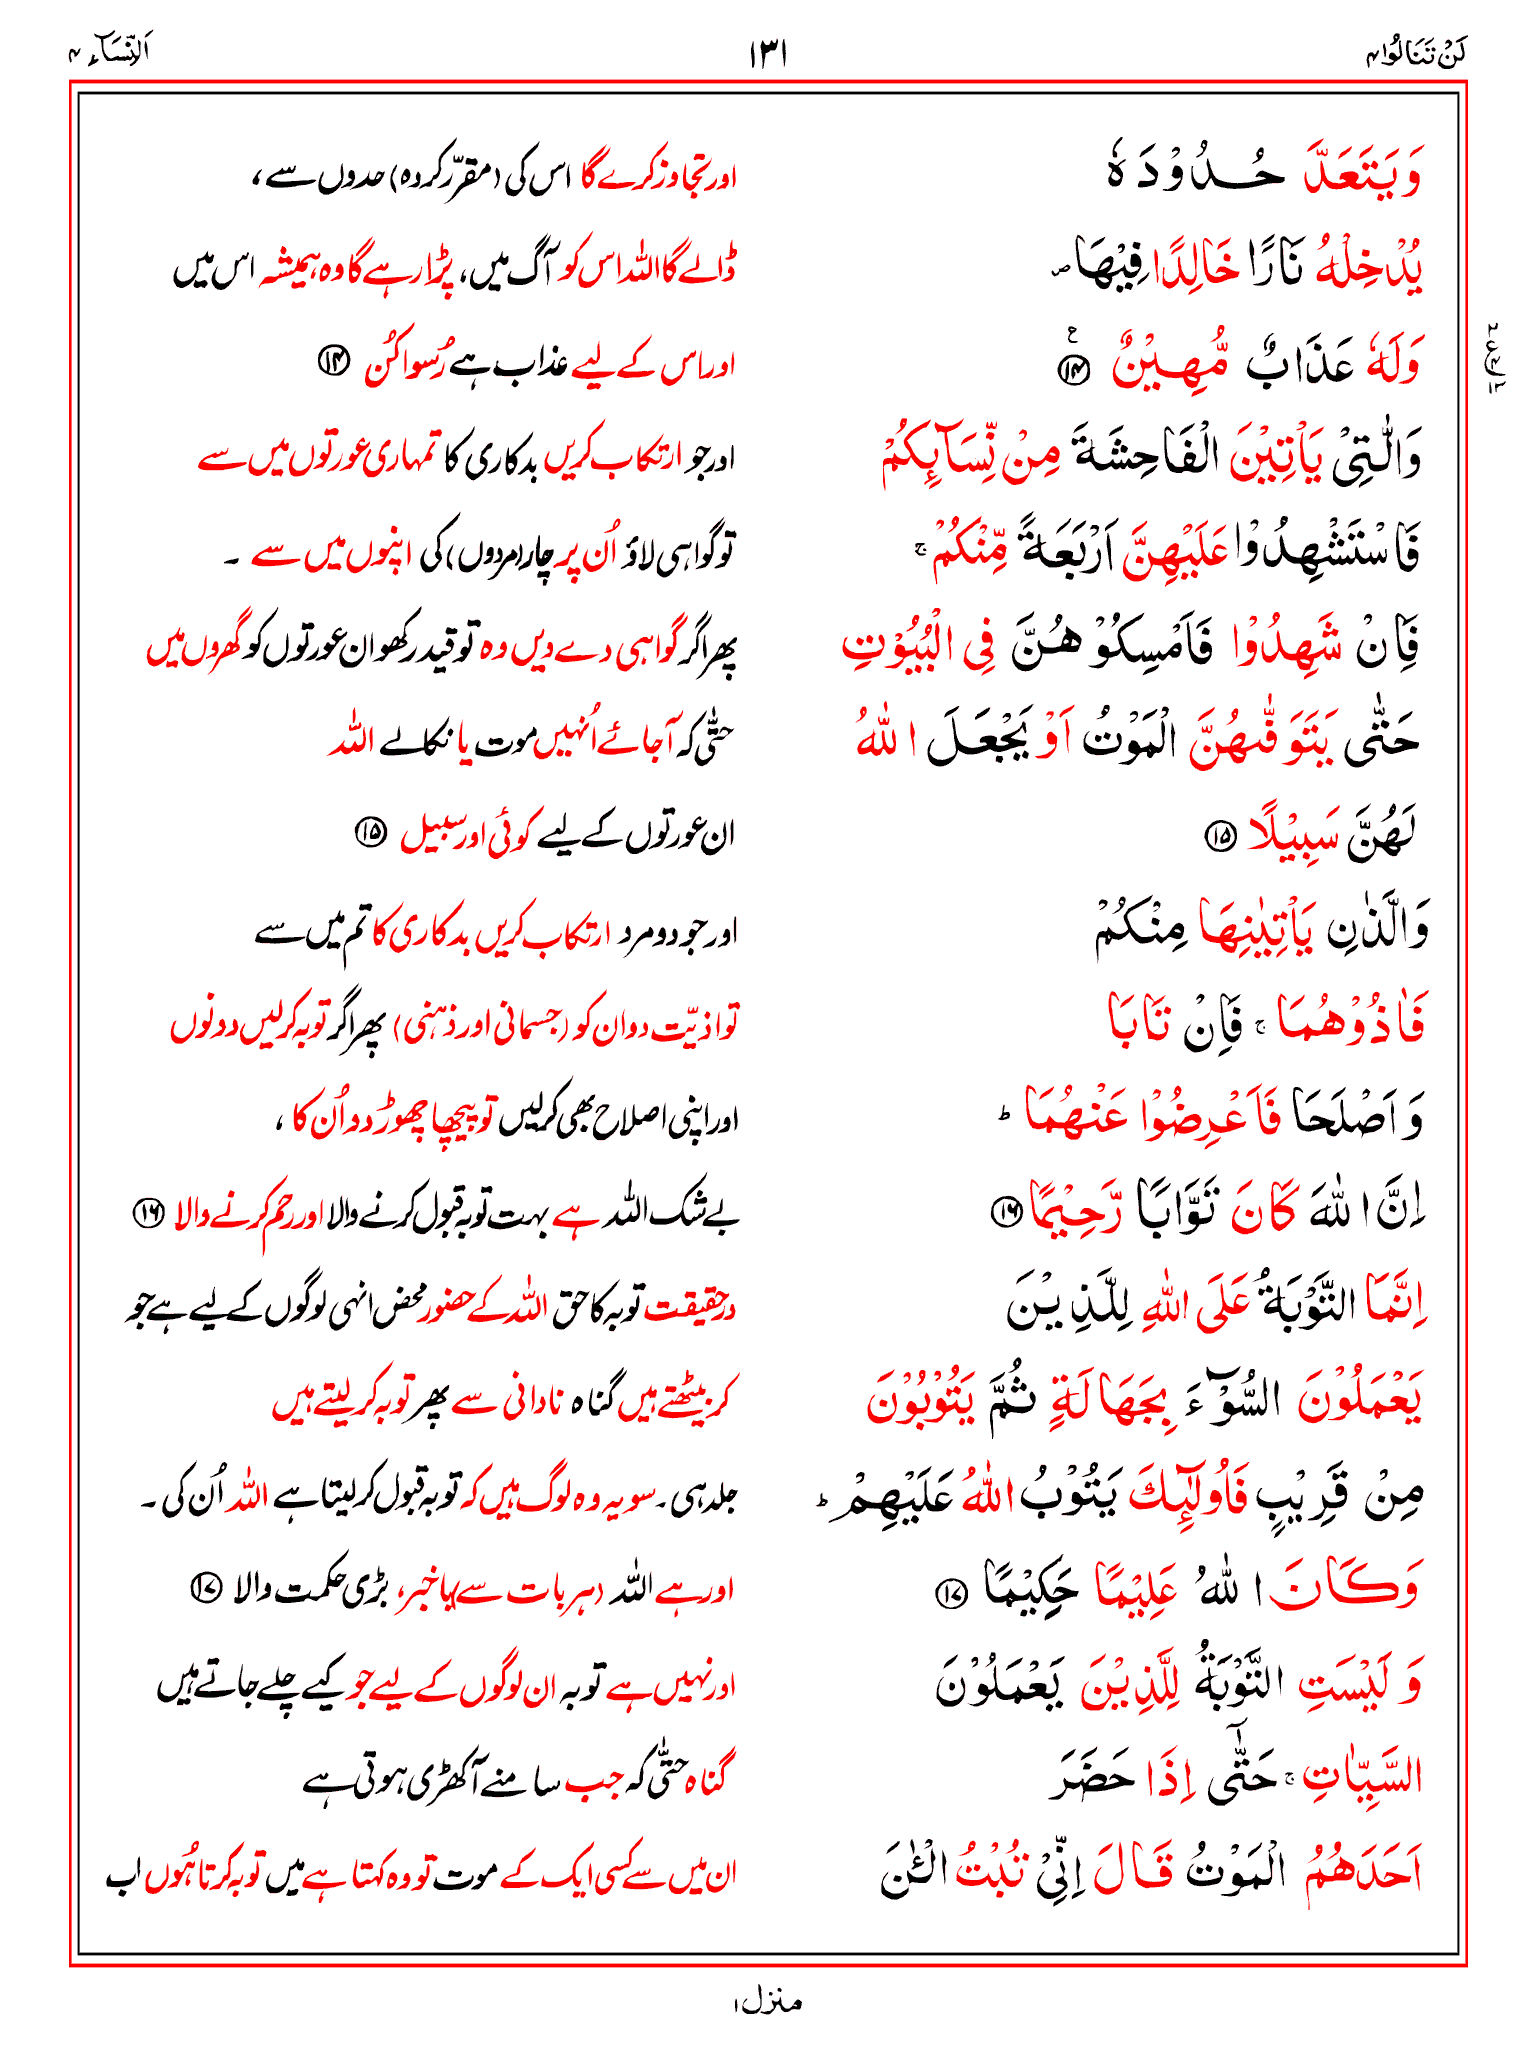 لَنْ تَنَالُوا ۴
۱۳۱
اَلنِّسَآء ۴
وَيَتَعَدَّ حُدُوْدَهٗ
اور تجاوز کرے گا اس کی (مقرّر کردہ) حدوں سے،
يُدْخِلْهُ نَارًا خَالِدًا فِيْهَا ص
ڈالے گا اللہ اس کو آگ میں، پڑا رہے گا وہ ہمیشہ اس میں
وَلَهٗ عَذَابٌ مُّهِيْنٌ ۱۴ ع
اور اس کے لیے عذاب ہے رُسوا کُن ۱۴
وَالّٰتِيْ يَاْتِيْنَ الْفَاحِشَةَ مِنْ نِّسَآئِكُمْ
اور جو ارتکاب کریں بدکاری کا تمہاری عورتوں میں سے
فَاسْتَشْهِدُوْا عَلَيْهِنَّ اَرْبَعَةً مِّنْكُمْ ج
تو گواہی لاؤ اُن پر چار (مردوں) کی اپنوں میں سے ۔
فَاِنْ شَهِدُوْا فَاَمْسِكُوْهُنَّ فِي الْبُيُوْتِ
پھر اگر گواہی دے دیں وہ تو قید رکھو ان عورتوں کو گھروں میں
حَتّٰى يَتَوَفّٰىهُنَّ الْمَوْتُ اَوْ يَجْعَلَ اللّٰهُ
حتّٰی کہ آجائے اُنہیں موت یا نکالے اللہ
لَهُنَّ سَبِيْلًا ۱۵
ان عورتوں کے لیے کوئی اور سبیل ۱۵
وَالَّذٰنِ يَاْتِيٰنِهَا مِنْكُمْ
اور جو دو مرد ارتکاب کریں بدکاری کا تم میں سے
فَاٰذُوْهُمَا ج فَاِنْ تَابَا
تو اذیّت دو ان کو (جسمانی اور ذہنی) پھر اگر توبہ کرلیں دونوں
وَاَصْلَحَا فَاَعْرِضُوْا عَنْهُمَا ط
اور اپنی اصلاح بھی کرلیں تو پیچھا چھوڑ دو اُن کا ،
اِنَّ اللّٰهَ كَانَ تَوَّابًا رَّحِيْمًا ۱۶
بے شک اللہ ہے بہت توبہ قبول کرنے والا اور رحم کرنے والا ۱۶
اِنَّمَا التَّوْبَةُ عَلَى اللّٰهِ لِلَّذِيْنَ
درحقیقت توبہ کا حق اللہ کے حضور محض انہی لوگوں کے لیے ہے جو
يَعْمَلُوْنَ السُّوْٓءَ بِجَهَالَةٍ ثُمَّ يَتُوْبُوْنَ
کر بیٹھتے ہیں گناہ نادانی سے پھر توبہ کر لیتے ہیں
مِنْ قَرِيْبٍ فَاُولٰٓئِكَ يَتُوْبُ اللّٰهُ عَلَيْهِمْ ط
جلد ہی ۔ سو یہ وہ لوگ ہیں کہ توبہ قبول کر لیتا ہے اللہ اُن کی ۔
وَكَانَ اللّٰهُ عَلِيْمًا حَكِيْمًا ۱۷
اور ہے اللہ (ہر بات سے) باخبر، بڑی حکمت والا ۱۷
وَلَيْسَتِ التَّوْبَةُ لِلَّذِيْنَ يَعْمَلُوْنَ
اور نہیں ہے توبہ ان لوگوں کے لیے جو کیے چلے جاتے ہیں
السَّيِّاٰتِ ج حَتّٰٓى اِذَا حَضَرَ
گناہ حتّٰی کہ جب سامنے آ کھڑی ہوتی ہے
اَحَدَهُمُ الْمَوْتُ قَالَ اِنِّيْ تُبْتُ الْـٰٔنَ
ان میں سے کسی ایک کے موت تو وہ کہتا ہے میں توبہ کرتا ہُوں اب
منزل ۱